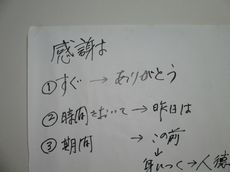 感謝は
①すぐ→ありがとう
②時間をおいて→昨日は
③期間→この前
↓
身につく→人徳